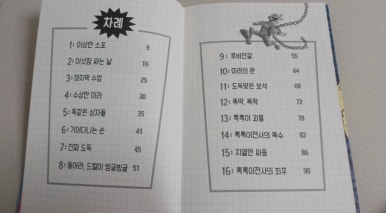 차례
1: 이상한 소포 9
2: 이삿짐 싸는 날 16
3: 마지막 수업 25
4: 수상한 미라 30
5: 똑같은 상자들 35
6: 기어다니는 손 41
7: 진짜 도둑 45
8: 돌아라, 드릴이 빙글빙글 51
9: 루비전갈 55
10: 미라의 관 64
11: 도둑맞은 보석 68
12: 똑딱, 똑딱 72
13: 톡톡이 괴물 78
14: 톡톡이전사의 복수 82
15: 치열한 싸움 86
16: 톡톡이전사의 최후 90